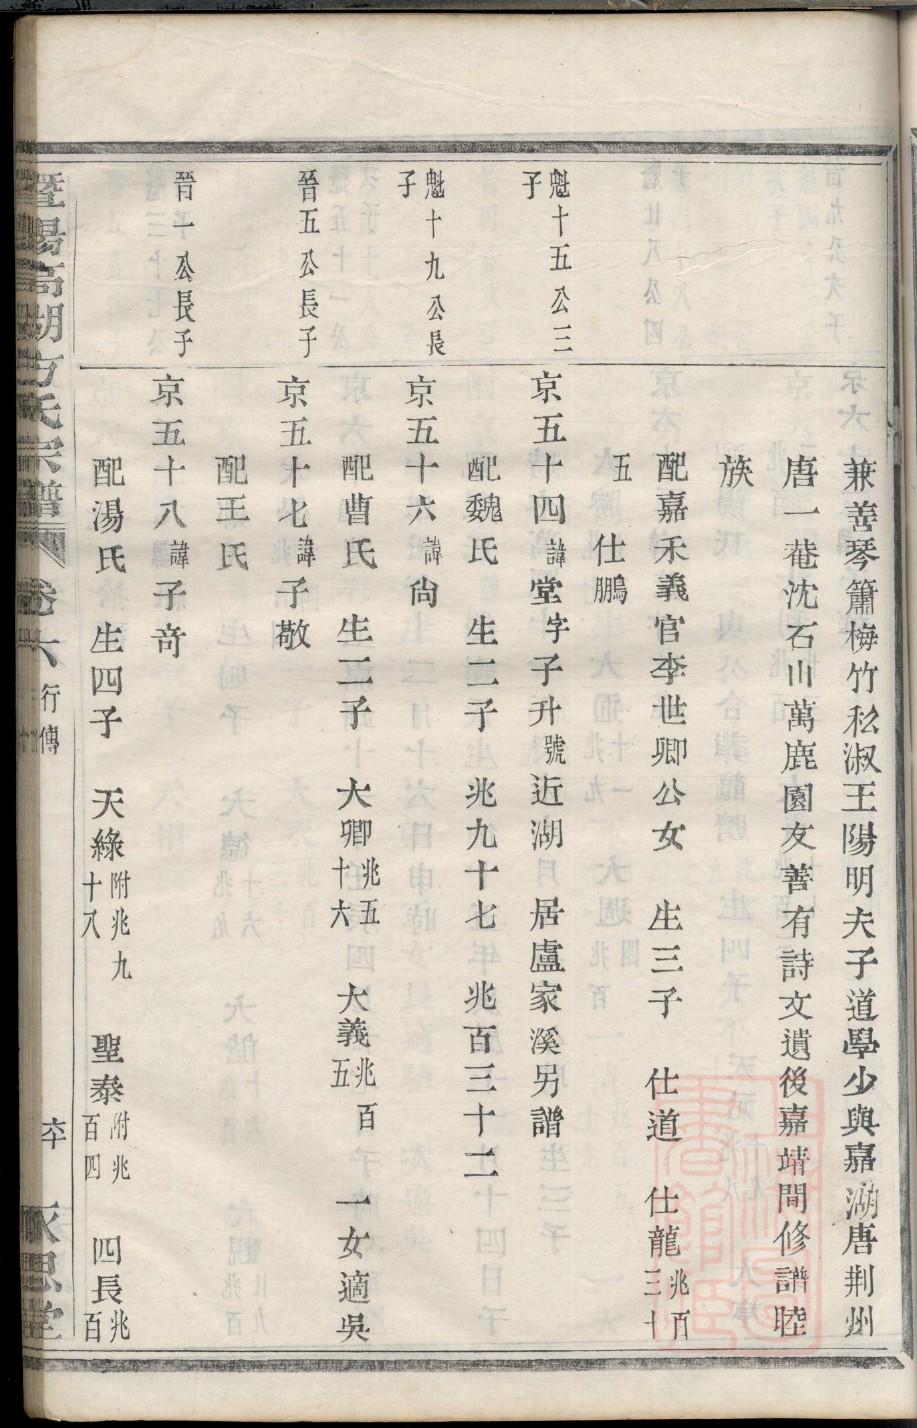 兼善琴簫梅竹私淑王陽明夫子道學少與嘉湖唐荆州
唐一菴沈石山萬鹿園友善有詩文遺後嘉靖間修譜睦
族
配嘉禾義官李世卿公女 生三子 仕道 仕龍兆百三十
五 仕鵬
魁十五公三子
京五十四諱堂字子升號近湖 居盧家溪另譜
配魏氏 生二子 兆九十七 兆百三十二
魁十九公長子
京五十六諱尙
配曹氏 生二子 大卿兆五十六 大義兆百五 一女適吳
晉五公長子
京五十七諱子敬
配王氏
晉一公長子
京五十八諱子奇
配湯氏 生四子 天綠附兆九十八 聖泰附兆百四 四長兆百
暨陽高湖方氏宗譜 卷六 行傳